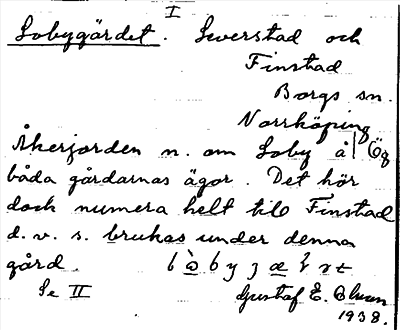 I
Lobygärdet. Leverstad och
Finstad
Borgs sn.
Norrköping
Åkerjorden n. om Loby å| Ög
båda gårdarnas ägor. Det hör
dock numera helt till Finstad
d. v. s. brukas under denna
gård.
Se II Gustaf E.
1938.